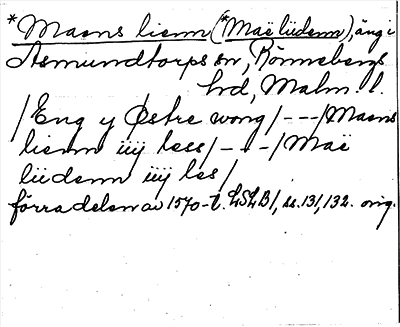 *Maens lienn (*Maë liidenn), äng i
Asmundtorps sn, Rönnebergs
hd, Malm. l.
/Eng y Østre wong/---/Maens
lienn iiij less/---/Maë
liidenn iiij les/
förra delen av 1570-t. LSLB1, ss. 131, 132. orig.